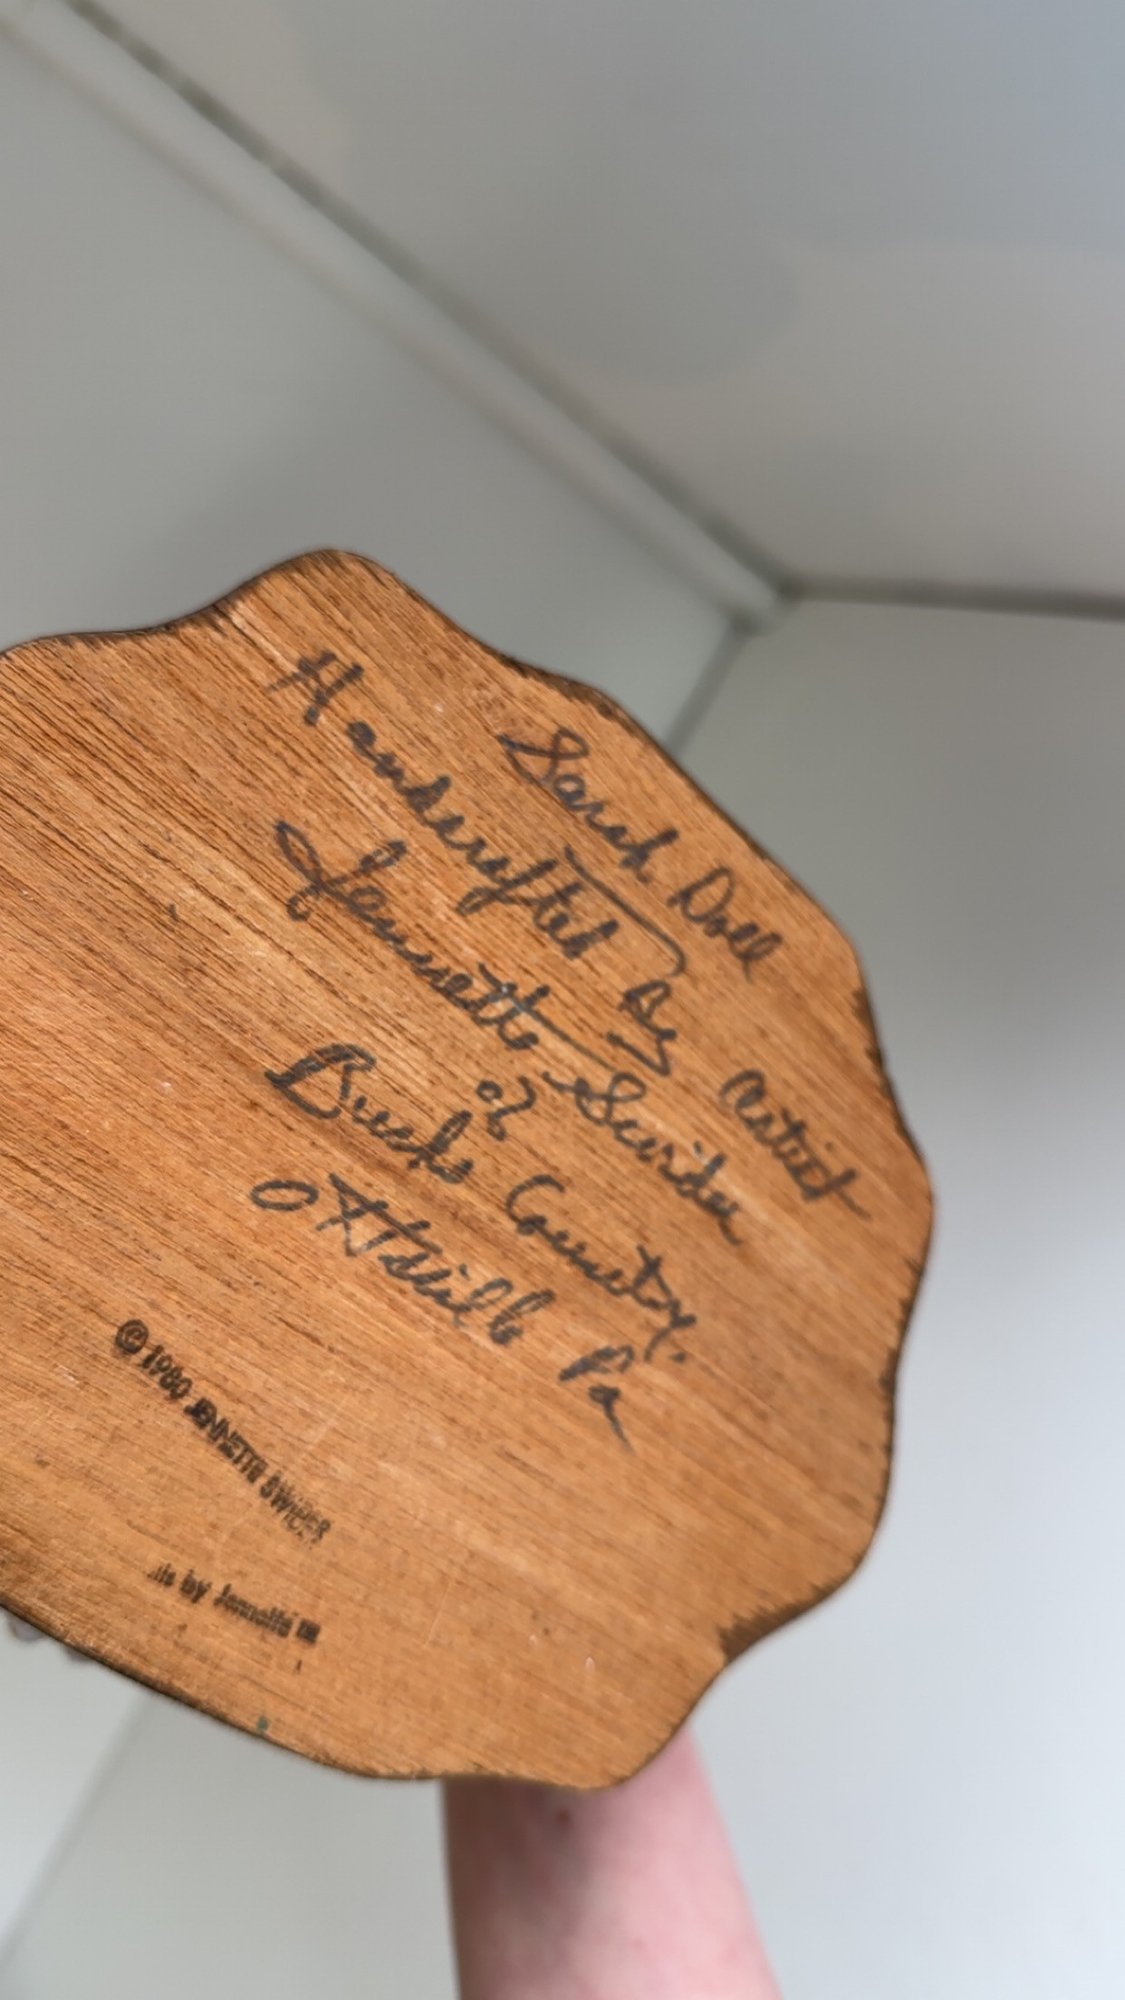 Sarah Doll
Handcrafted By Artist
Jennette Swider
of
Bucks County.
Ottsville Pa
© 1980 JENNETTE SWIDER
by Jennette